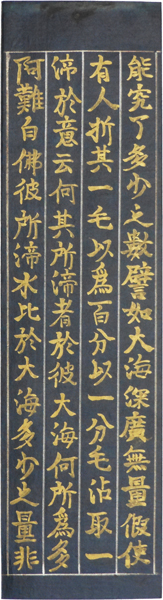 能究了多少之數譬如大海深廣無量假使
有人折其一毛以為百分以一分毛沾取一
渧於意云何其所渧者於彼大海何所為多
阿難白佛彼所渧水比於大海多少之量非